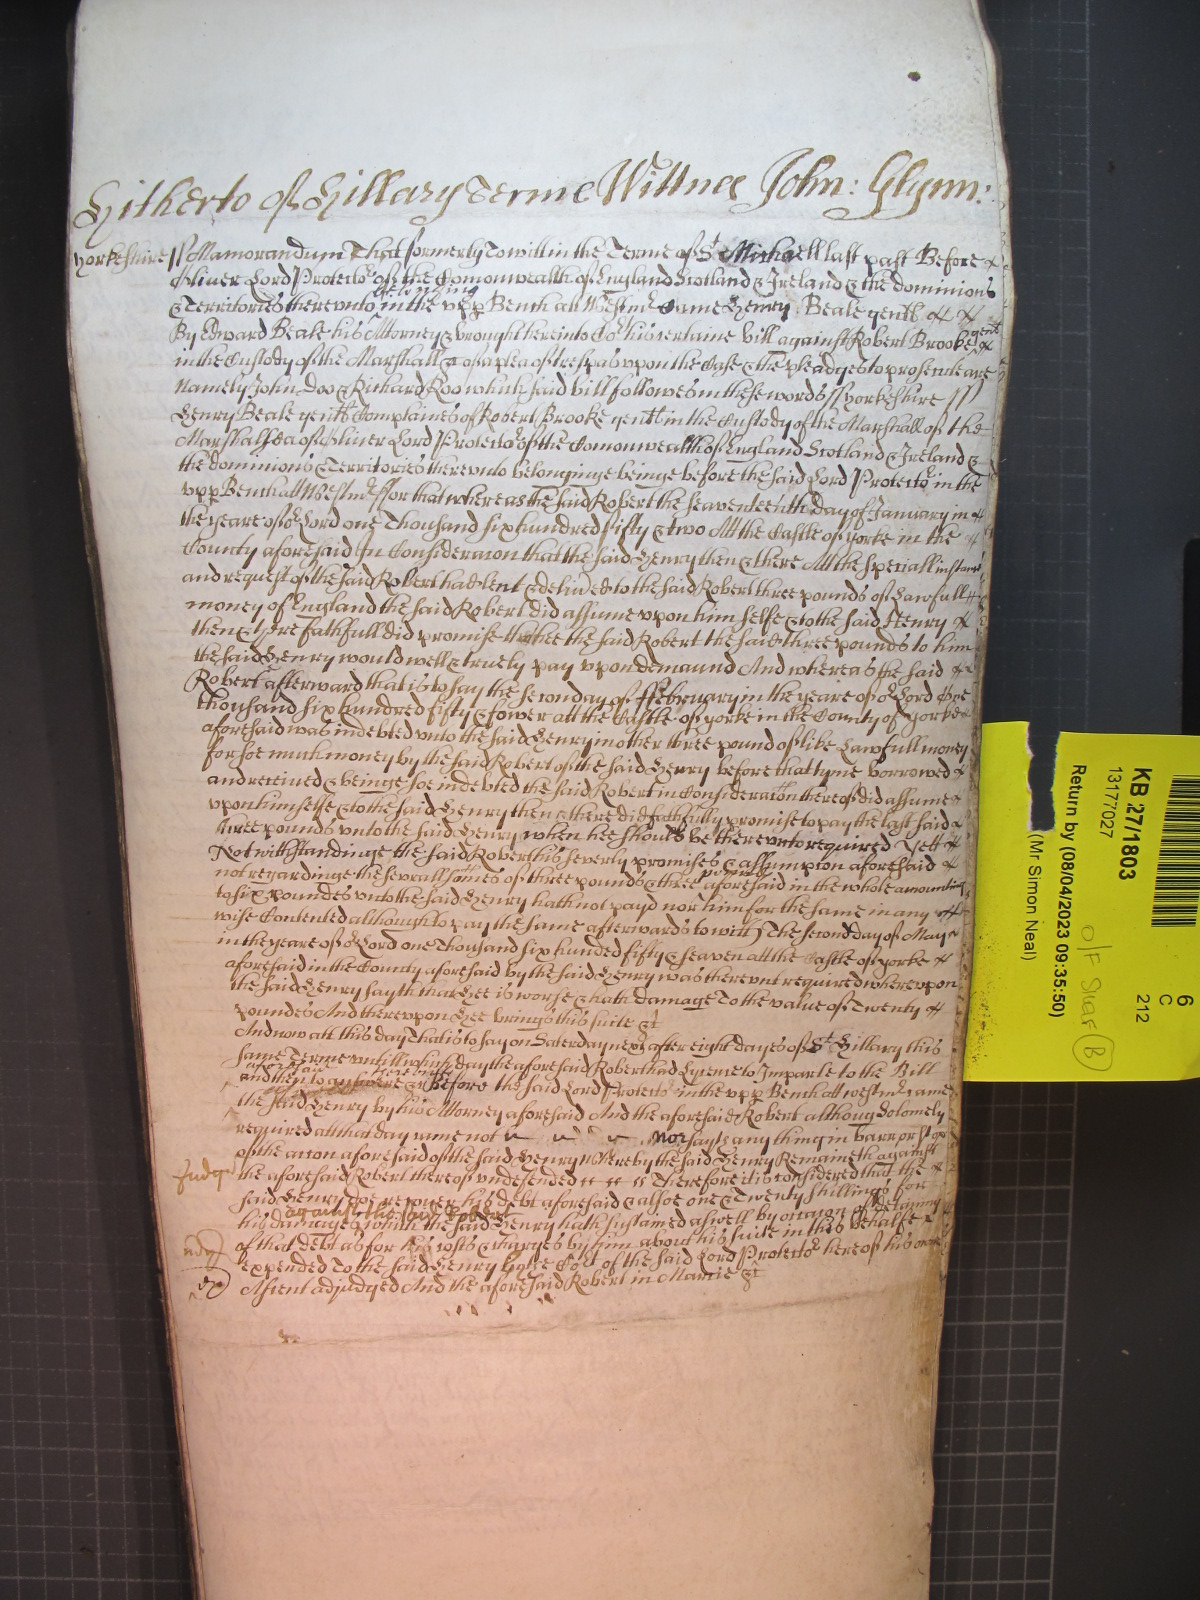 Hitherto of Hillary Terme Wittnes John: Glynn:
yorkeshire ss Memorandum That formerly To witt in the Terme of St Michaell last past Before
Oliver Lord Protector of the Comonwealth of England Scotland & Ireland & the dominions
belonging
& Territories therevnto in the vpp Bench att Westmr Came Henry Beale gentl
gent
By Edward Beale his Attorney & brought here into Cort his certaine bill against Robert Brooke
in the Custody of the Marshall & of a plea of trespas vpon the Case & the pleadges to prosecute are
Namely John Doo & Richard Roo which said bill followes in these words ss yorkeshire ss
Henry Beale gentl Complaines of Robert Brooke gentl in the Custody of the Marshall of the
Marshallsea of Oliver Lord Protector of the Comonwealth of England Scotland & Ireland &
the dominions & Territories therevnto belonginge beinge before the said Lord Protector in the
vpp Bench att Westmr ffor that whereas the said Robert the seaventeenth day of January in
the yeare of or Lord one Thousand six hundred fifty & two Att the Castle of yorke in the
County aforesaid In Consideracon that the said Henry then & there Att the speciall instance
and request of the said Robert had lent & delived to the said Robert three pounds of Lawfull
money of England the said Robert did assume vpon him selfe & to the said Henry
then & there faithfull did promise that hee the said Robert the said three pounds to him
the said Henry would well & truely pay vpon demaund And whereas the said
Robert afterward that is to say the second day of ffebruary in the yeare of or Lord One
thousand six hundred fifty & fower att the Castle of yorke in the County of yorke
aforesaid was indebted vnto the said Henry in other three pound of like Lawfull money
for soe much money by the said Robert of the said Henry before that tyme borrowed
and received & beinge soe indebted the said Robert in Consideration thereof did assume
vpon himselfe & to the said Henry then & there did faithfully promise to pay the last said
three pounds vnto the said Henry when hee should be therevnto required Yett
Notwithstandinge the said Robert his severly promises & assumpcion aforesaid
not regardinge the severall somes of three pounds & three pounds aforesaid in the whole amounting
to six poundes vnto the said Henry hath not payd nor him for the same in any
wise Contented although to pay the same afterwards to witt The second day of May
in the yeare of or Lord one Thousand six hunded fifty & seaven att the Castle of yorke
aforesaid in the County aforesaid by the said Henry was therevnt required wherevpon
the said Henry sayth that hee is worse & hath damage To the value of Twenty
poundes And therevpon hee brings this suite &c
And now att this day That is to say on Saterday next after eight dayes of St Hillary this
same Terme vntill which day the aforesaid Robert had Lycence to Imparle to the Bill
aforesaid
and then to answere & Before the said Lord Protector in the vpp Bench att westmr came
the said Henry by his Attorney aforesaid And the aforesaid Robert althoug solomely
required att that day came not nor sayes any thing in barr or
of the accon aforesaid of the said Henry whereby the said Henry Remaineth against
Judgt the aforesaid Robert thereof vndefended Therefore it is considered that the
said Henry doe recouer his debt aforesaid & alsoe one & Twenty shillings for
against the said Robert
his damages which the said Henry hath sustained aswell by occasion of detaining
of that debt as for his costs & charges by him about his suite in this behalfe
expended To the said Henry by the Cort of the said Lord Protector here of his owne
Assent adjudged And the aforesaid Robert in Mercie &c
KB 27/1803
13177027
Return by (08/04/2023 09:35:50)
(Mr Simon Neal)
6
C
212
O/F Staf B